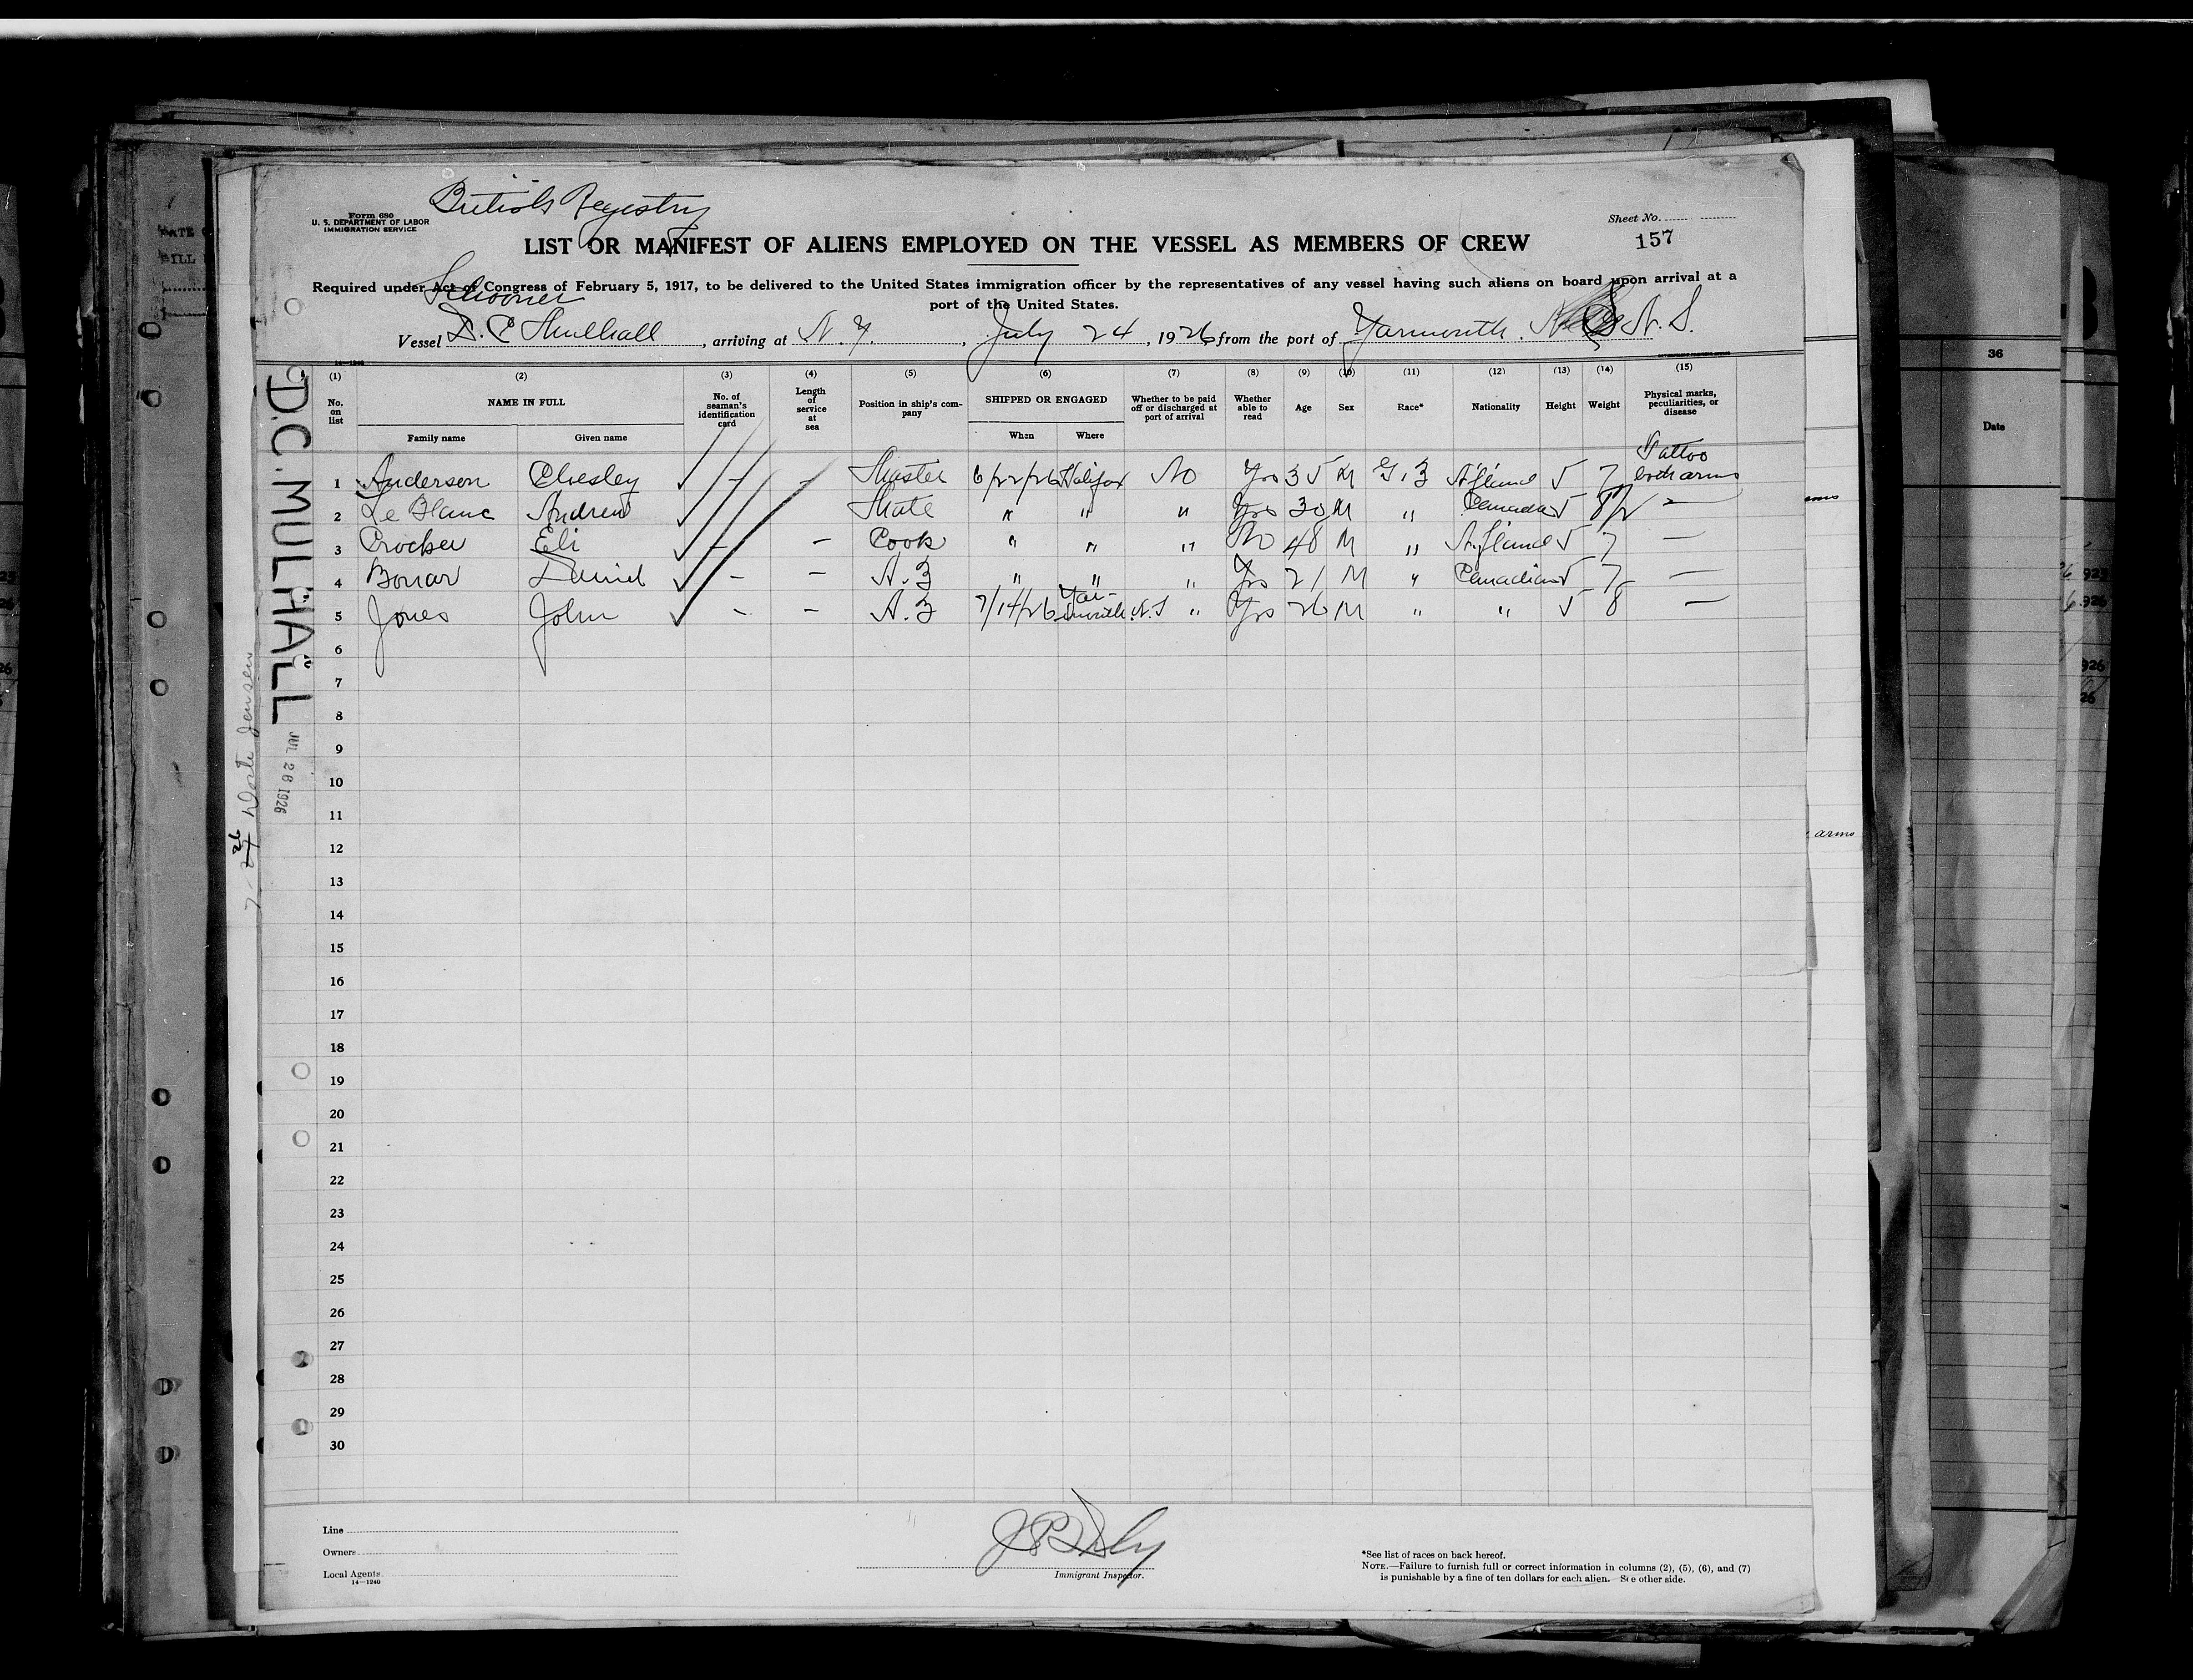 British Registry
Form 680
U. S. DEPARTMENT OF LABOR
IMMIGRATION SERVICE
Sheet No.
157
LIST OR MANIFEST OF ALIENS EMPLOYED ON THE VESSEL AS MEMBERS OF CREW
Required under Act of Congress of February 5, 1917, to be delivered to the United States immigration officer by the representatives of any vessel having such aliens on board upon arrival at a
port of the United States.
Schooner
Vessel D. C Mulhall, arriving at N. Y., July 24, 1926, from the port of Yarmouth. N. S.
14—1240
(1) (2) (3) (4) (5) (6) (7) (8) (9) (10) (11) (12) (13) (14) (15)
No. on list NAME IN FULL Family name Given name No. of seaman's identification card Length of service at sea Position in ship's company SHIPPED OR ENGAGED When Where Whether to be paid off or discharged at port of arrival Whether able to read Age Sex Race* Nationality Height Weight Physical marks, peculiarities, or disease
1 Anderson Chesley - - Master 6/22/26 Halifax No Yes 35 M N'fland 5 7 Tattoo both arms
2 Le Blanc Andrew Mate " " " Yes 30 M " Canada 5 8½ -
3 Crocker Eli - - Cook " " " No 48 M " N.fland 5 7 -
4 Daniel - - A. B " " " Yes 21 M " Canadian 5 7 -
5 Jones John - - A. B 7/14/26 Yar-mouth. N.S " Yes 26 M " " 5 8 -
6
7
8
9
10
11
12
13
14
15
16
17
18
19
20
21
22
23
24
25
26
27
28
29
30
D.C. MULHALL
JUL 26 1926
Line
Owners
Local Agents
14—1240
Immigrant Inspector.
*See list of races on back hereof.
NOTE.—Failure to furnish full or correct information in columns (2), (5), (6), and (7)
is punishable by a fine of ten dollars for each alien. See other side.
36
Date
arms